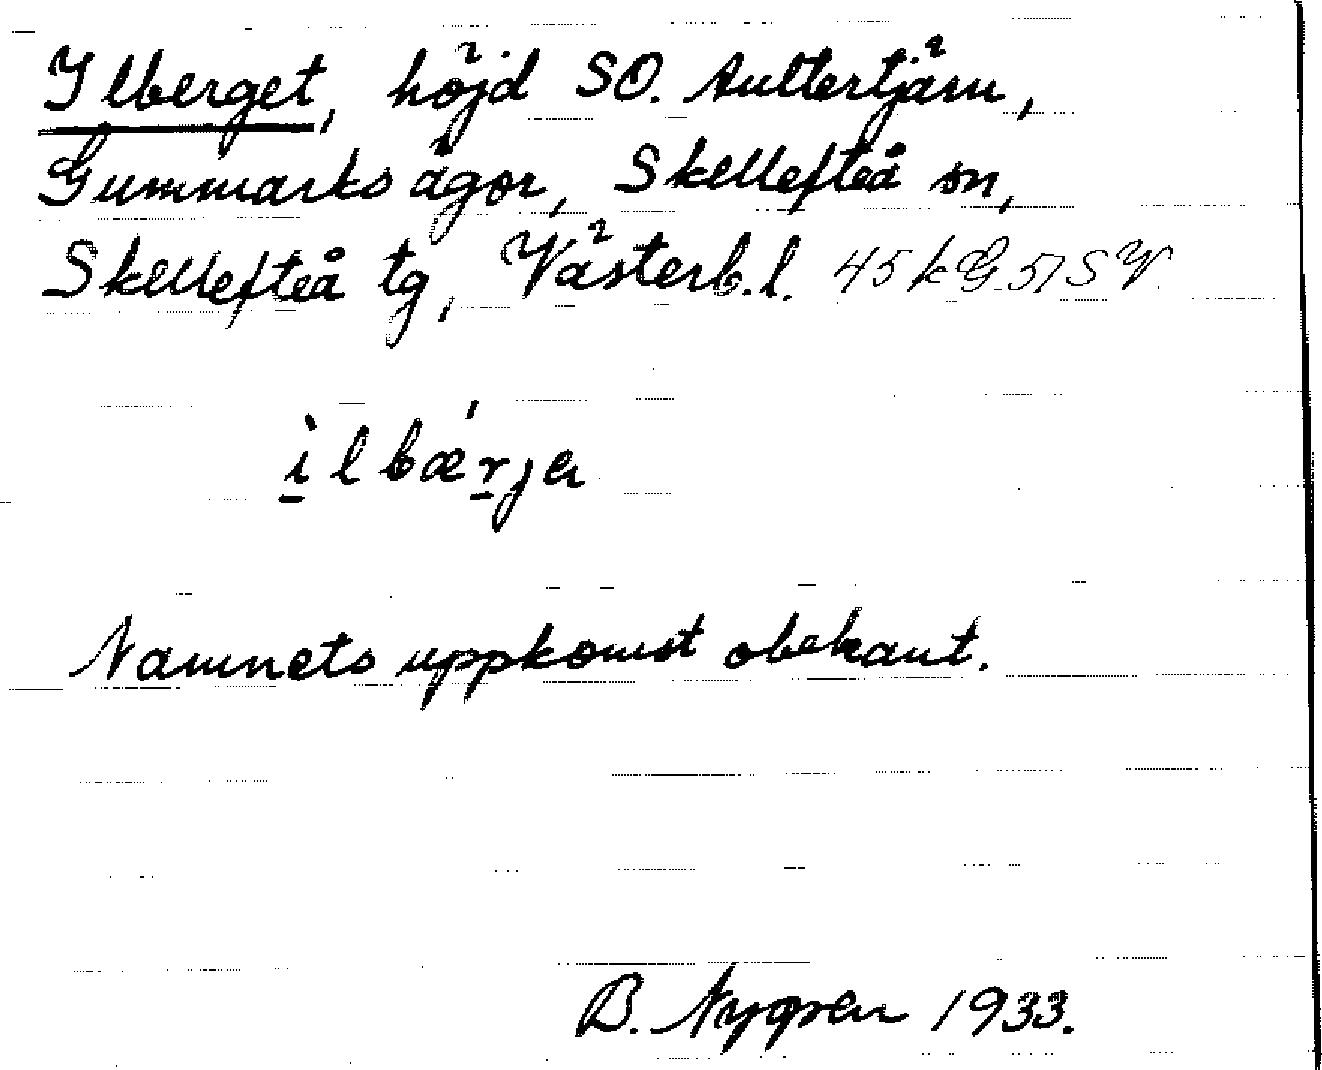 Ilberget, höjd SO. Aultertjärn,
Gummarks ägor, Skellefteå sn,
Skellefteå tg, Västerb.l. 45 k G 51 SV
ì l b æ ŕ j a
Namnets uppkomst obekant.
B. Nygren 1933.